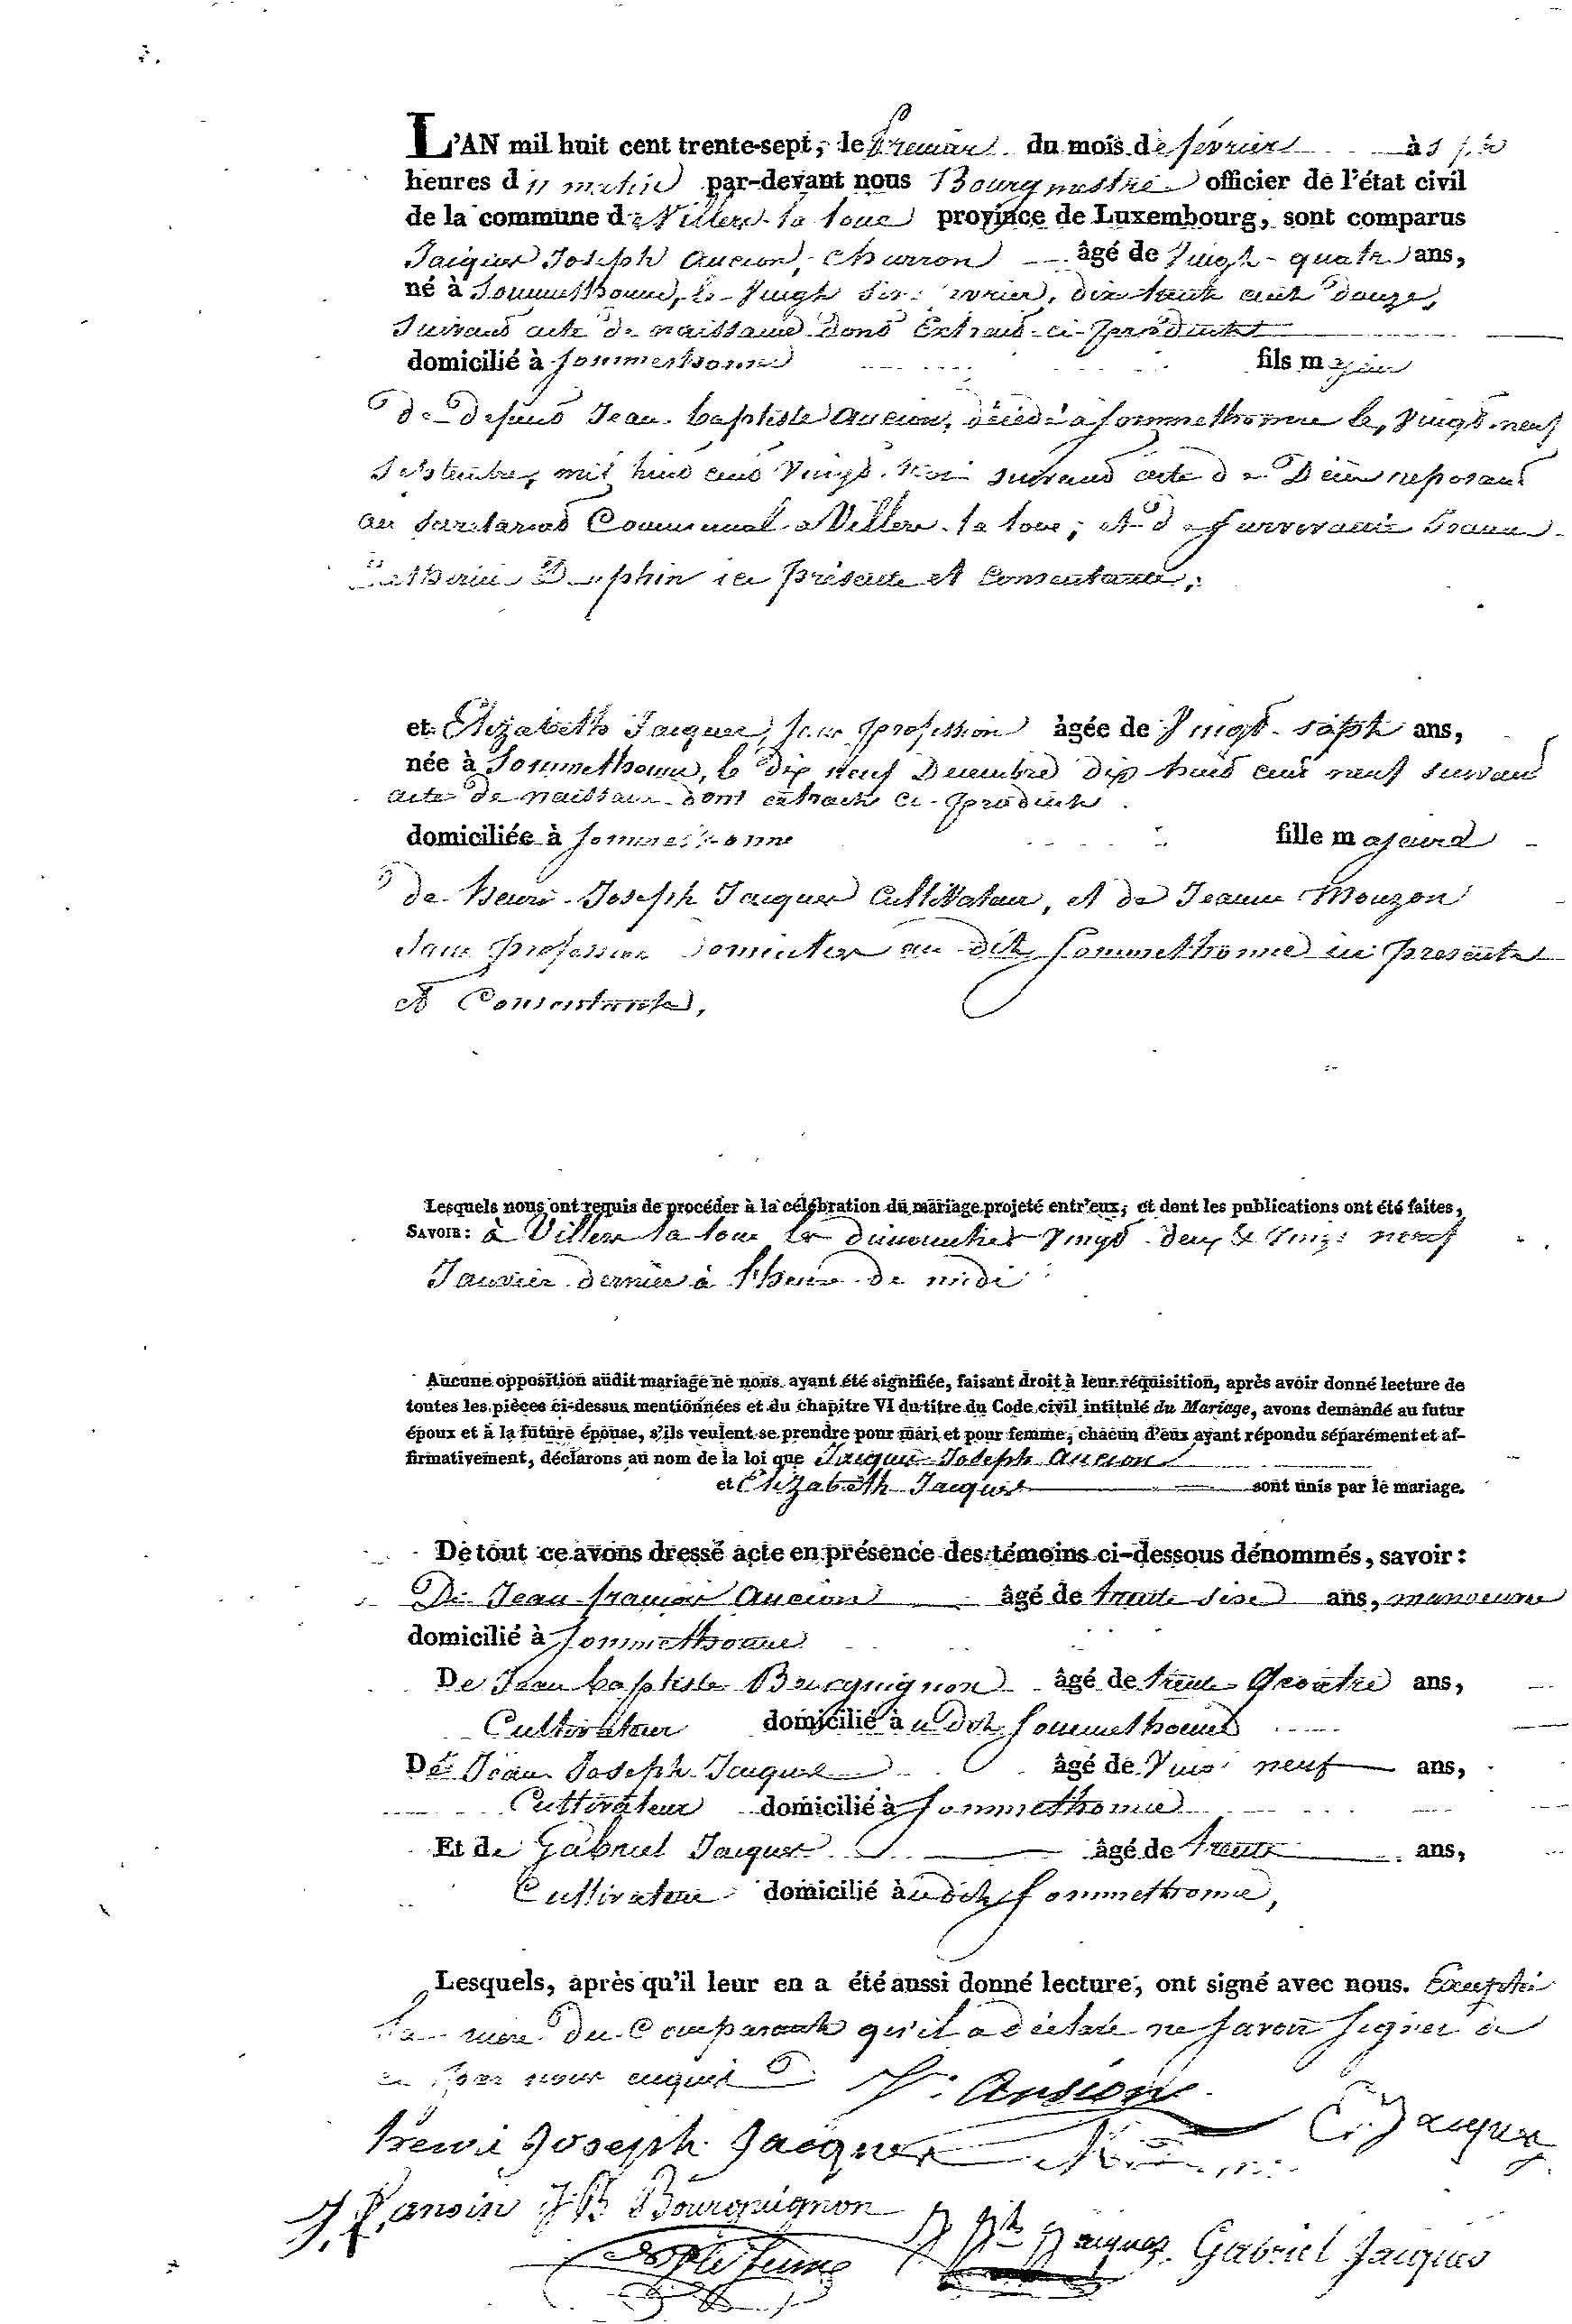 L'AN mil huit cent trente-sept, le Premier du mois de février à
heures du matin par-devant nous Bourgmestre officier de l'état civil
de la commune de Villers-la loue province de Luxembourg, sont comparus
Jacques Joseph Aucion, charron âgé de Vingt-quatre ans,
né à Sommethonne, le Vingt six février, dix huit cent douze,
suivant acte de naissance dont Extrait ci-produit
domicilié à Sommethonne fils majeur
de défunt Jean-baptiste Aucion, décédé à Sommethonne le, Vingt-neuf
Septembre, mil huit cent Vingt trois suivant acte de Décès reposant
au Secrétariat Communal à Villers-la loue; et de survivante Jeanne
Catherine Dauphin ici présente et consentante;
et Elizabeth Jacques, sans profession âgée de Vingt-sept ans,
née à Sommethonne, le dix neuf Décembre dix huit cent neuf suivant
acte de naissance dont extrait ci-produit
domiciliée à Sommethonne fille majeure
de henri-Joseph Jacques Cultivateur, et de Jeanne Mouzon
sans profession domiciliés au dit Sommethonne ici présents
et Consentants,
Lesquels nous ont requis de procéder à la célébration du mariage projeté entr'eux, et dont les publications ont été faites,
SAVOIR: à Villers la loue les dimanches Vingt-deux & Vingt neuf
Janvier dernier à l'heure de midi
Aucune opposition audit mariage ne nous ayant été signifiée, faisant droit à leur réquisition, après avoir donné lecture de
toutes les pièces ci-dessus mentionnées et du chapitre VI du titre du Code civil intitulé du Mariage, avons demandé au futur
époux et à la future épouse, s'ils veulent se prendre pour mari et pour femme, chacun d'eux ayant répondu séparément et af-
firmativement, déclarons au nom de la loi que Jacques Joseph Aucion
et Elizabeth Jacques sont unis par le mariage.
De tout ce avons dressé acte en présence des témoins ci-dessous dénommés, savoir:
De Jean françois Aucion âgé de trente six ans, manoeuvre
domicilié à Sommethonne
De Jean baptiste Bourguignon âgé de trente Quatre ans,
Cultivateur domicilié au dit Sommethonne
De Jean Joseph Jacques âgé de Vingt neuf ans,
Cultivateur domicilié à Sommethonne
Et de Gabriel Jacques âgé de trente ans,
Cultivateur domicilié au dit Sommethonne,
Lesquels, après qu'il leur en a été aussi donné lecture, ont signé avec nous. Excepté
La mère du Comparant qu'il a déclaré ne savoir signer de
ce par nous enquis J. Ansion
henri Joseph Jacques E. Jacques
J. F. ansion J B Bourguignon
Jacques Gabriel Jacques